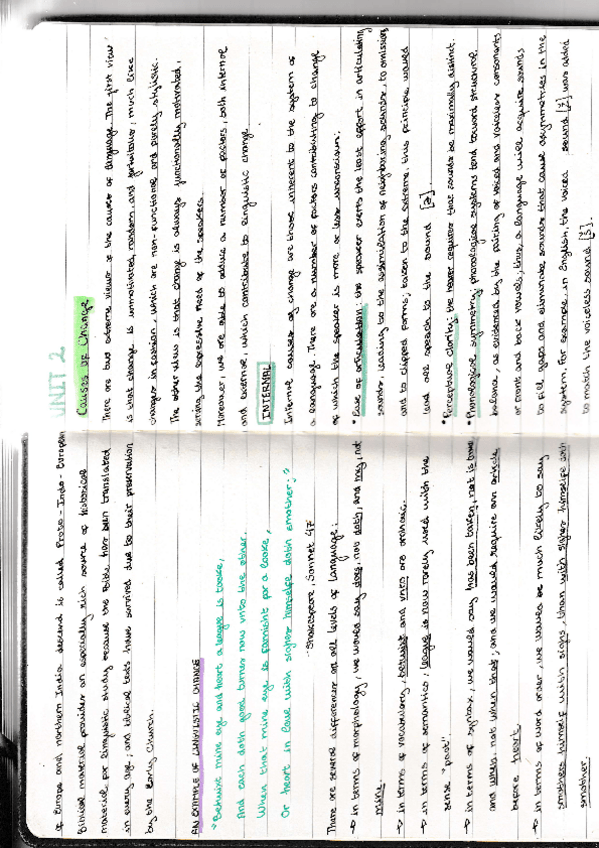 of Europe and northern India descend is called Proto-Indo-European
Biblical material provides an especially rich source of historical
material for linguistic study because the Bible has been translated
in every age; and biblical texts have survived due to their preservation
by the Early Church.
AN EXAMPLE OF LINGUISTIC CHANGE
"Betwixt mine eye and heart a league is tooke,
And each doth good turnes now unto the other,
When that mine eye is famisht for a looke,
Or heart in love with sighes himselfe doth smother;"
Shakespeare, Sonnet 47
There are several differences on all levels of language:
→ in terms of morphology, we would say does, not doth, and my, not
mine.
→ in terms of vocabulary, betwixt and unto are archaic.
→ in terms of semantics, league is now rarely used with the
sense "pact"
→ in terms of syntax, we would say has been taken, not is took
and when, not when that; and we would require an article
before heart
→ in terms of word order, we would be much likely to say
smothers himself with sighs, than with sighes himselfe doth
smother.
UNIT 2
Causes of Change
There are two extreme views of the causes of language. The first view
is that change is unmotivated, random and fortuitous, much like
changes in fashion, which are non-functional and purely stylistic.
The other view is that change is always functionally motivated,
serving the expressive need of the speakers.
Moreover, we are able to adduce a number of factors, both internal
and external, which contribute to linguistic change.
INTERNAL
Internal causes of change are those inherent to the system of
a language. There are a number of factors contributing to change
of which the speaker is more or less unconscious:
*Ease of articulation: the speaker exerts the least effort in articulating
sounds, leading to the assimilation of neighboring sounds, to omissions
and to clipped forms; taken to the extreme, this principle would
lead all speech to the sound [ə]
*Perceptive clarity: the hearer requires that sounds be maximally distinct.
*Phonological symmetry: phonological systems tend toward structural
balance, as evidenced by the pairing of voiced and voiceless consonants
or front and back vowels; thus, a language will acquire sounds
to fill gaps and eliminate sounds that cause asymmetries in the
system. For example, in English, the voiced sound [ʒ] was added
to match the voiceless sound [ʃ].